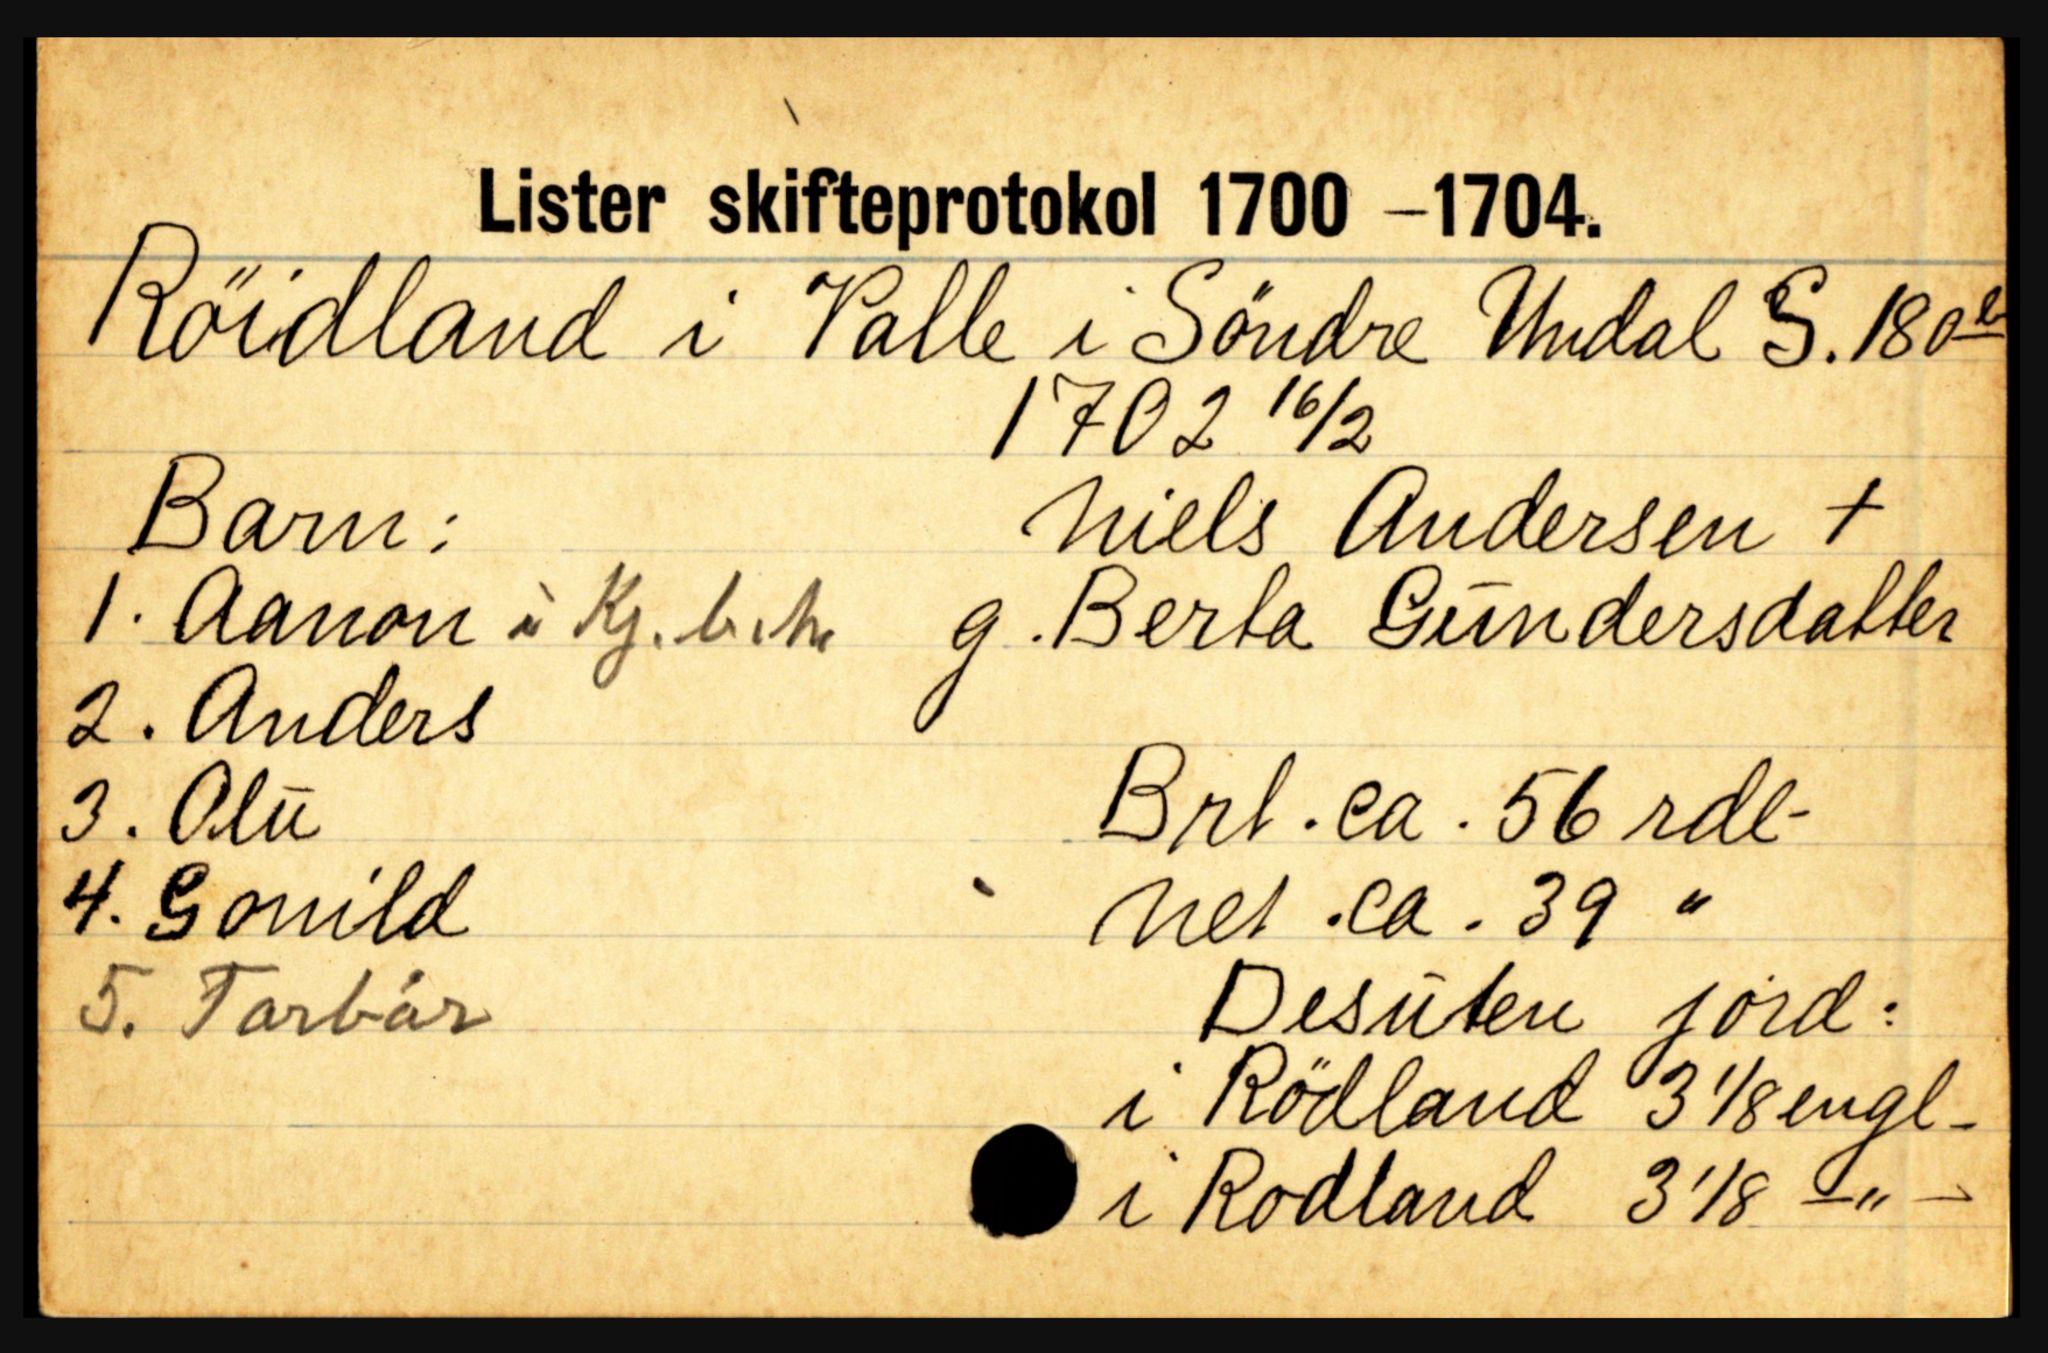 Lister skifteprotokol 1700 – 1704.
Röidland i Valle i Söndre Undal S. 180 b
1702 16/2
Barn:
Niels Andersen +
1. Aanon i Kj.b.h.
g. Berta Gūndersdatter
2. Anders
3. Olū
Brt. ca. 56 rdl-
4. Gonild
Net. ca. 39 "
5. Tarbár
Desūten jord:
i Rödland 3 1/8 engl-
i Rodland 3 1/8 –"–